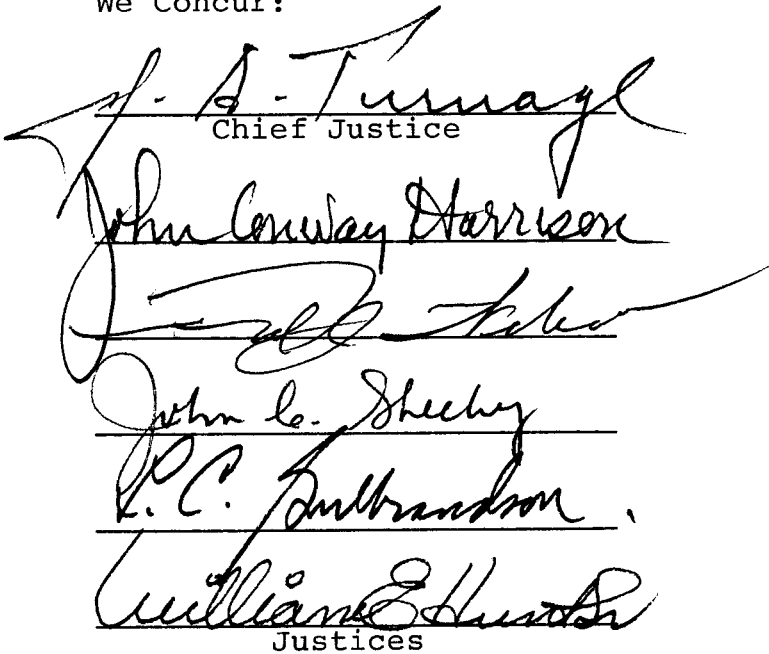 We Concur:
J. A. Turnage
Chief Justice
John Conway Harrison
John C. Sheehy
L. C. Gulbrandson
William E. Hunt Sr
Justices